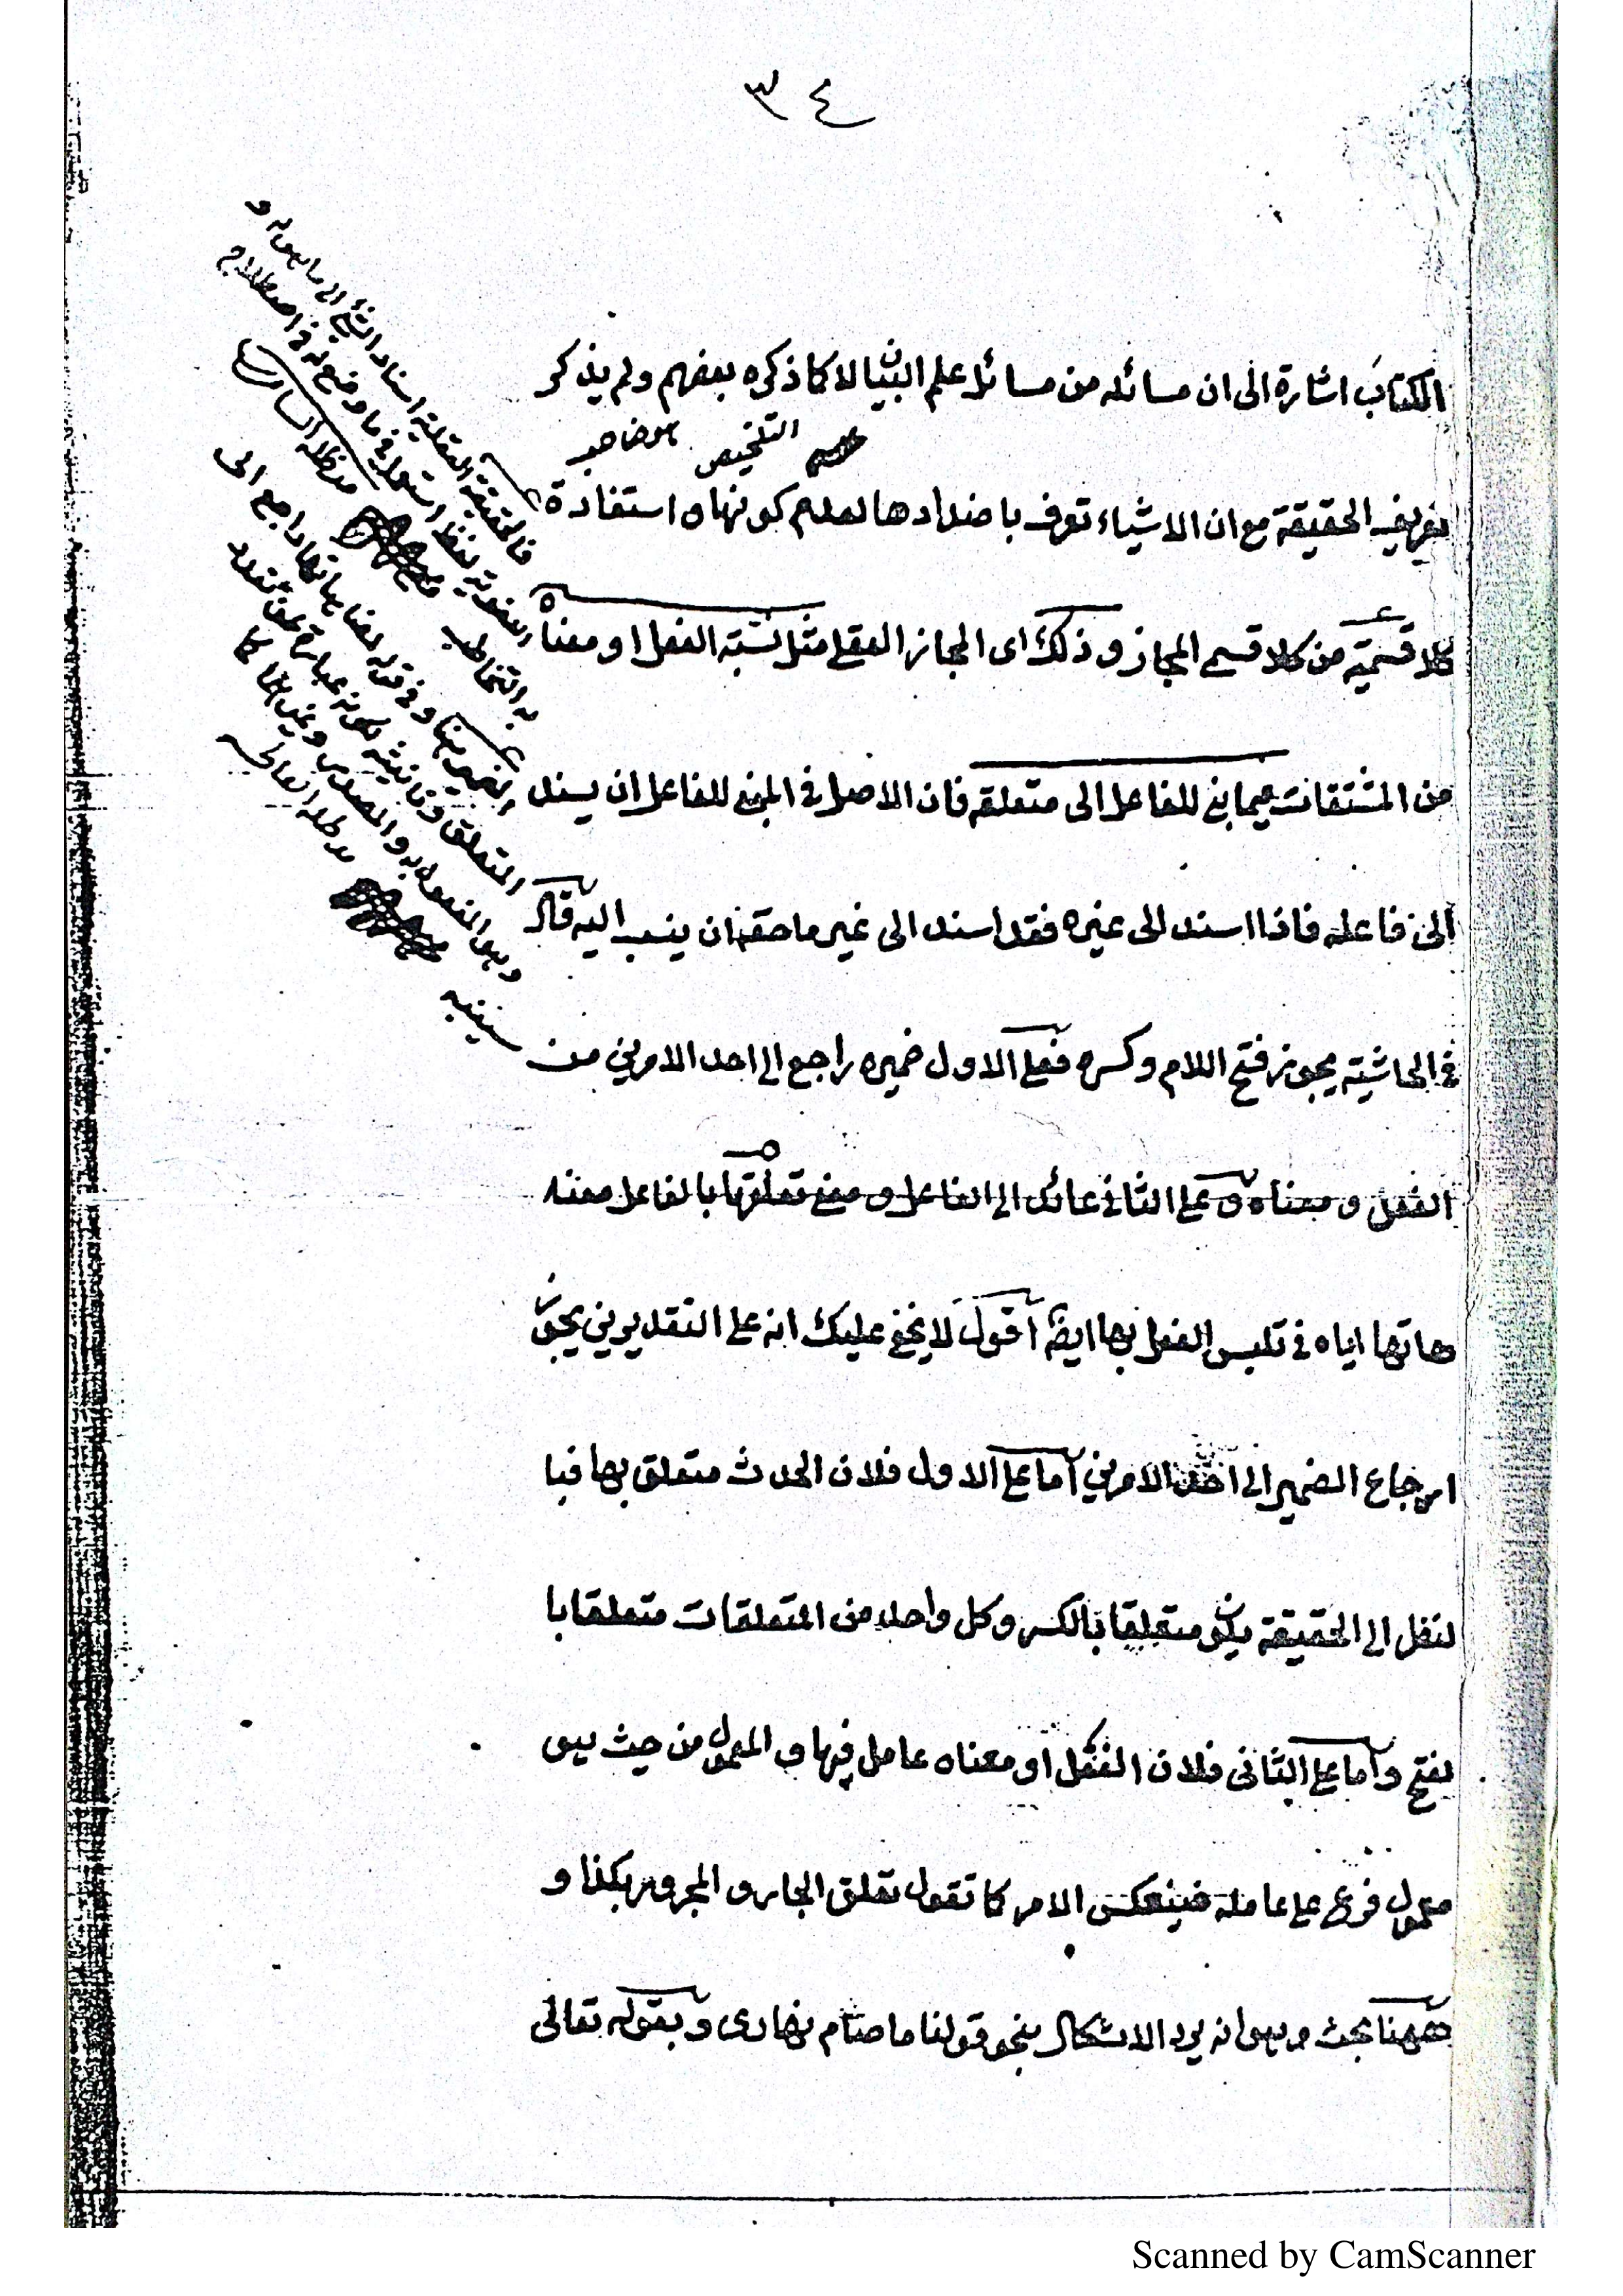 ٣٤
الكتاب اشارة الى ان مسائله من مسائل علم البيان لا كما ذكره بعضهم ولم يذكر
التلخيص
تعريف الحقيقة مع ان الاشياء تعرف باضدادها لعدم كونها استفادة
كلا قسميه من كلا قسمى المجاز وذلك اى المجاز العقلى مثل نسبة الفعل او معناه
من المشتقات فيما بنى للفاعل الى متعلقه فان الاصل فى المبنى للفاعل ان يسند
الى فاعله فاذا اسند الى غيره فقد اسند الى غير ما حقه ان ينسب اليه قال
فى الحاشية يجوز فتح اللام وكسره فعلى الاول ضميره راجع الى احد الامرين من
الفعل و معناه و على الثانى عائد الى الفاعل و معنى تعلقها بالفاعل
هاتها اياه فى تلبس الفعل بها ايضا اقول لا يخفى عليك انه على التقديرين يجوز
ارجاع الضمير الى احد الامرين اما على الاول فلان الحدث متعلق بها فبا
لنظر الى الحقيقة يكون متعلقا بالكسر وكل واحد من المتعلقات متعلقا با
لفتح و اما على الثانى فلان الفعل او معناه عامل فيها و المعمول من حيث هو
معمول فرع على عامله فينعكس الامر كما تقول تعلق الجار و المجرور بكذا و
ههنا بحث وهو انه يرد الاشكال بنحو قولنا ما صام نهارى و بقوله تعالى
فالحقيقة العقلية اسناد الشئ الى ما هو له و
اللغوية لفظ استعمل فى ما وضع له فى اصطلاح
به التخاطب
الضمير هنا و فى قوله مضاهاتها راجع الى
المتعلق و تانيثه لكونه عبارة عن متعدد
و هو المفعول به والمصدر و غيرهما كما
سينبه
Scanned by CamScanner